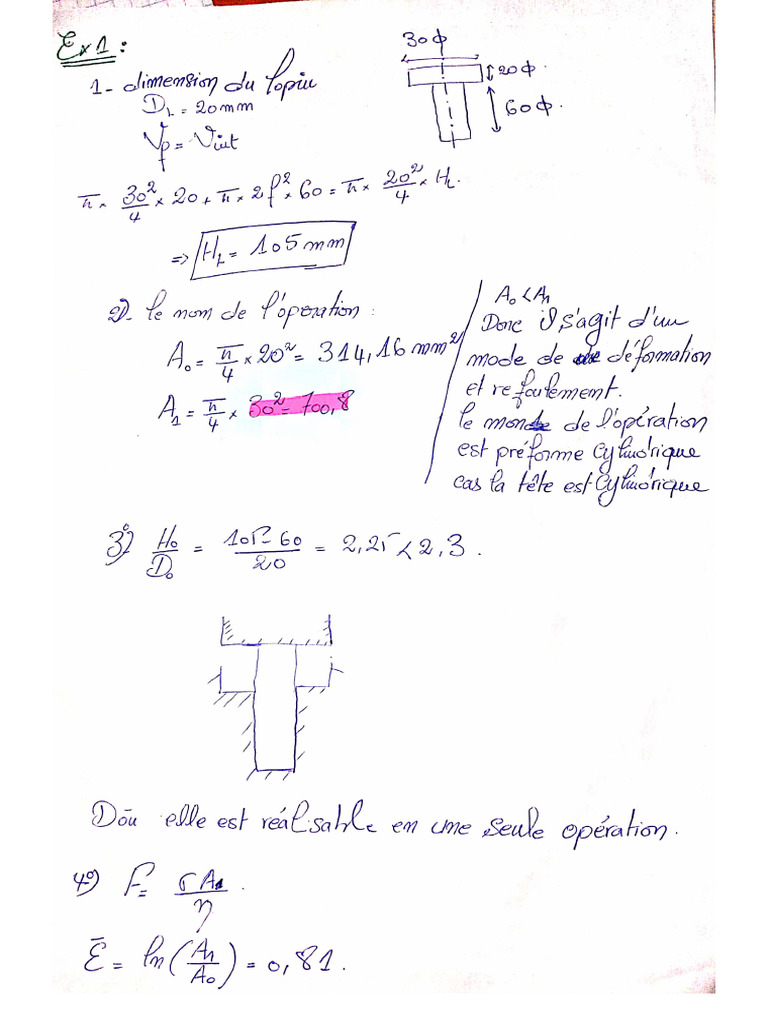 Ex1:
30ϕ
20ϕ.
60ϕ.
1- dimension du lopin
D_L = 20mm
V_f = V_init
π × 30²/4 × 20 + π × × 60 = π × 20²/4 × H_L.
=> H_L = 105 mm
2)- le nom de l'opération :
A₀ = π/4 × 20² = 314,16 mm²
A₁ = π/4 × 30² = 700,8
A₀ < A₁
Donc il s'agit d'un
mode de déformation
et refoulement.
le mode de l'opération
est préforme cylindrique
cas la tête est cylindrique
3°) H₀/D₀ = 105-60/20 = 2,25 < 2,3.
Doū elle est réalisable en une seule opération.
4°) F = σA₁/η.
Ē = ln(A₁/A₀) = 0,81.